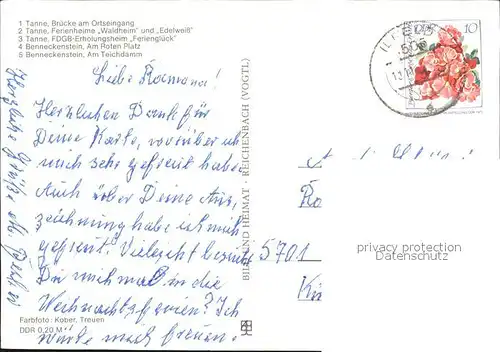 1 Tanne, Brücke am Ortseingang
2 Tanne, Ferienheime „Waldheim" und „Edelweiß"
3 Tanne, FDGB-Erholungsheim „Ferienglück"
4 Benneckenstein, Am Roten Platz
5 Benneckenstein, Am Teichdamm
Liebe Romana!
Herzlichen Dank für
Deine Karte, worüber ich
mich sehr gefreut habe.
Auch über Deine Aus-
zeichnung habe ich mich
gefreut. Vielleicht besuchst
Du mich mal in die
Weihnachtsferien? Ich
würde mich freuen.
Herzliche Grüße
Farbfoto: Kober, Treuen
DDR 0,20 M
BILD UND HEIMAT · REICHENBACH (VOGTL)
10
5701
privacy protection
Datenschutz